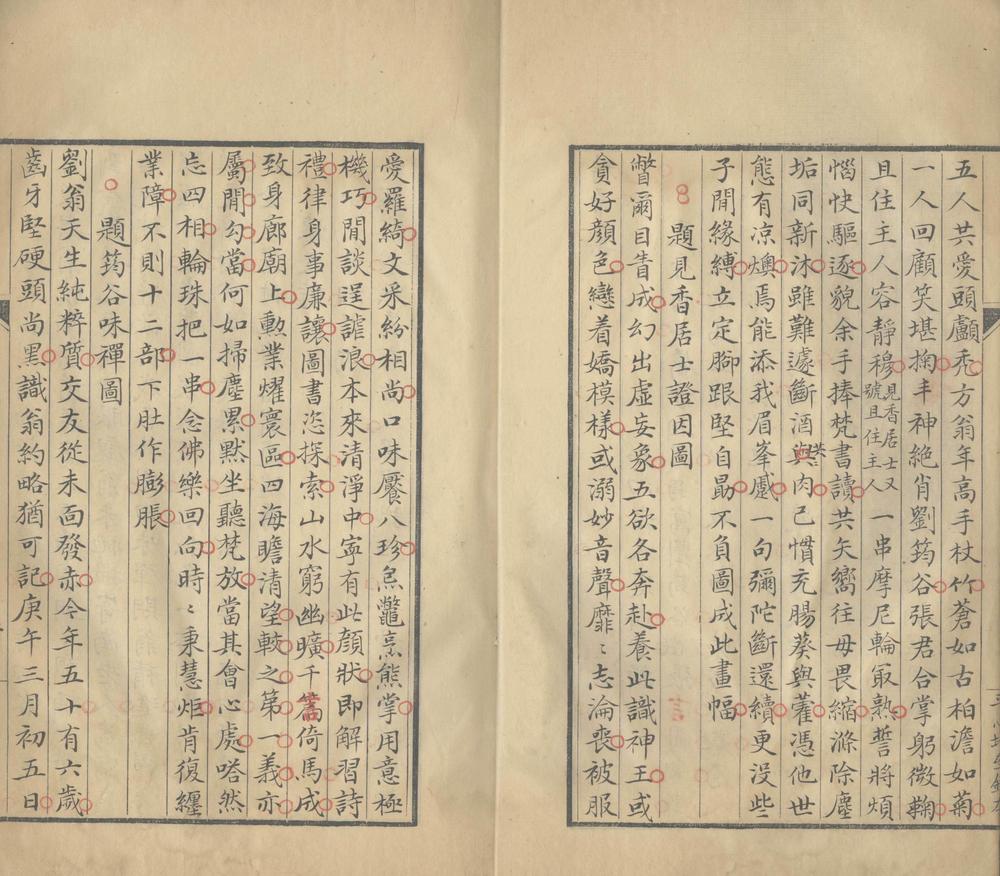 五人共愛頭顱禿方翁年高手杖竹蒼如古柏澹如菊
一人回顧笑堪掬丰神絕肖劉筠谷張君合掌躬微鞠
且住主人容靜穆見香居士又號且住主人一串摩尼輪最熟誓將煩
惱快驅逐貌余手捧梵書讀共矢嚮往毋畏縮滌除塵
垢同新沐雖難遽斷酒與肉已慣充腸葵與藿憑他世
態有凉燠焉能添我眉峯蹙一句彌陀斷還續更沒些
子閒緣縛立定腳跟堅自勗不負圖成此畫幅
題見香居士證因圖
瞥爾目眚成幻出虛妄象五欲各奔赴養此識神王或
貪好顏色戀着嬌模樣或溺妙音聲靡〻志淪喪被服
愛羅綺文采紛相尚口味饜八珍炰鼈烹熊掌用意極
機巧閒談逞謔浪本來清淨中寧有此顏狀即解習詩
禮律身事廉讓圖書恣探索山水窮幽曠千篙倚馬成
致身廊廟上勳業耀寰區四海瞻清望較之第一義亦
屬閒勾當何如掃塵累默坐聽梵放當其會心處嗒然
忘四相輪珠把一串念佛樂回向時〻秉慧炬肯復纏
業障不則十二部下肚作膨脹
題筠谷味禪圖
劉翁天生純粹質交友從未面發赤今年五十有六歲
齒牙堅硬頭尚黑識翁約略猶可記庚午三月初五日